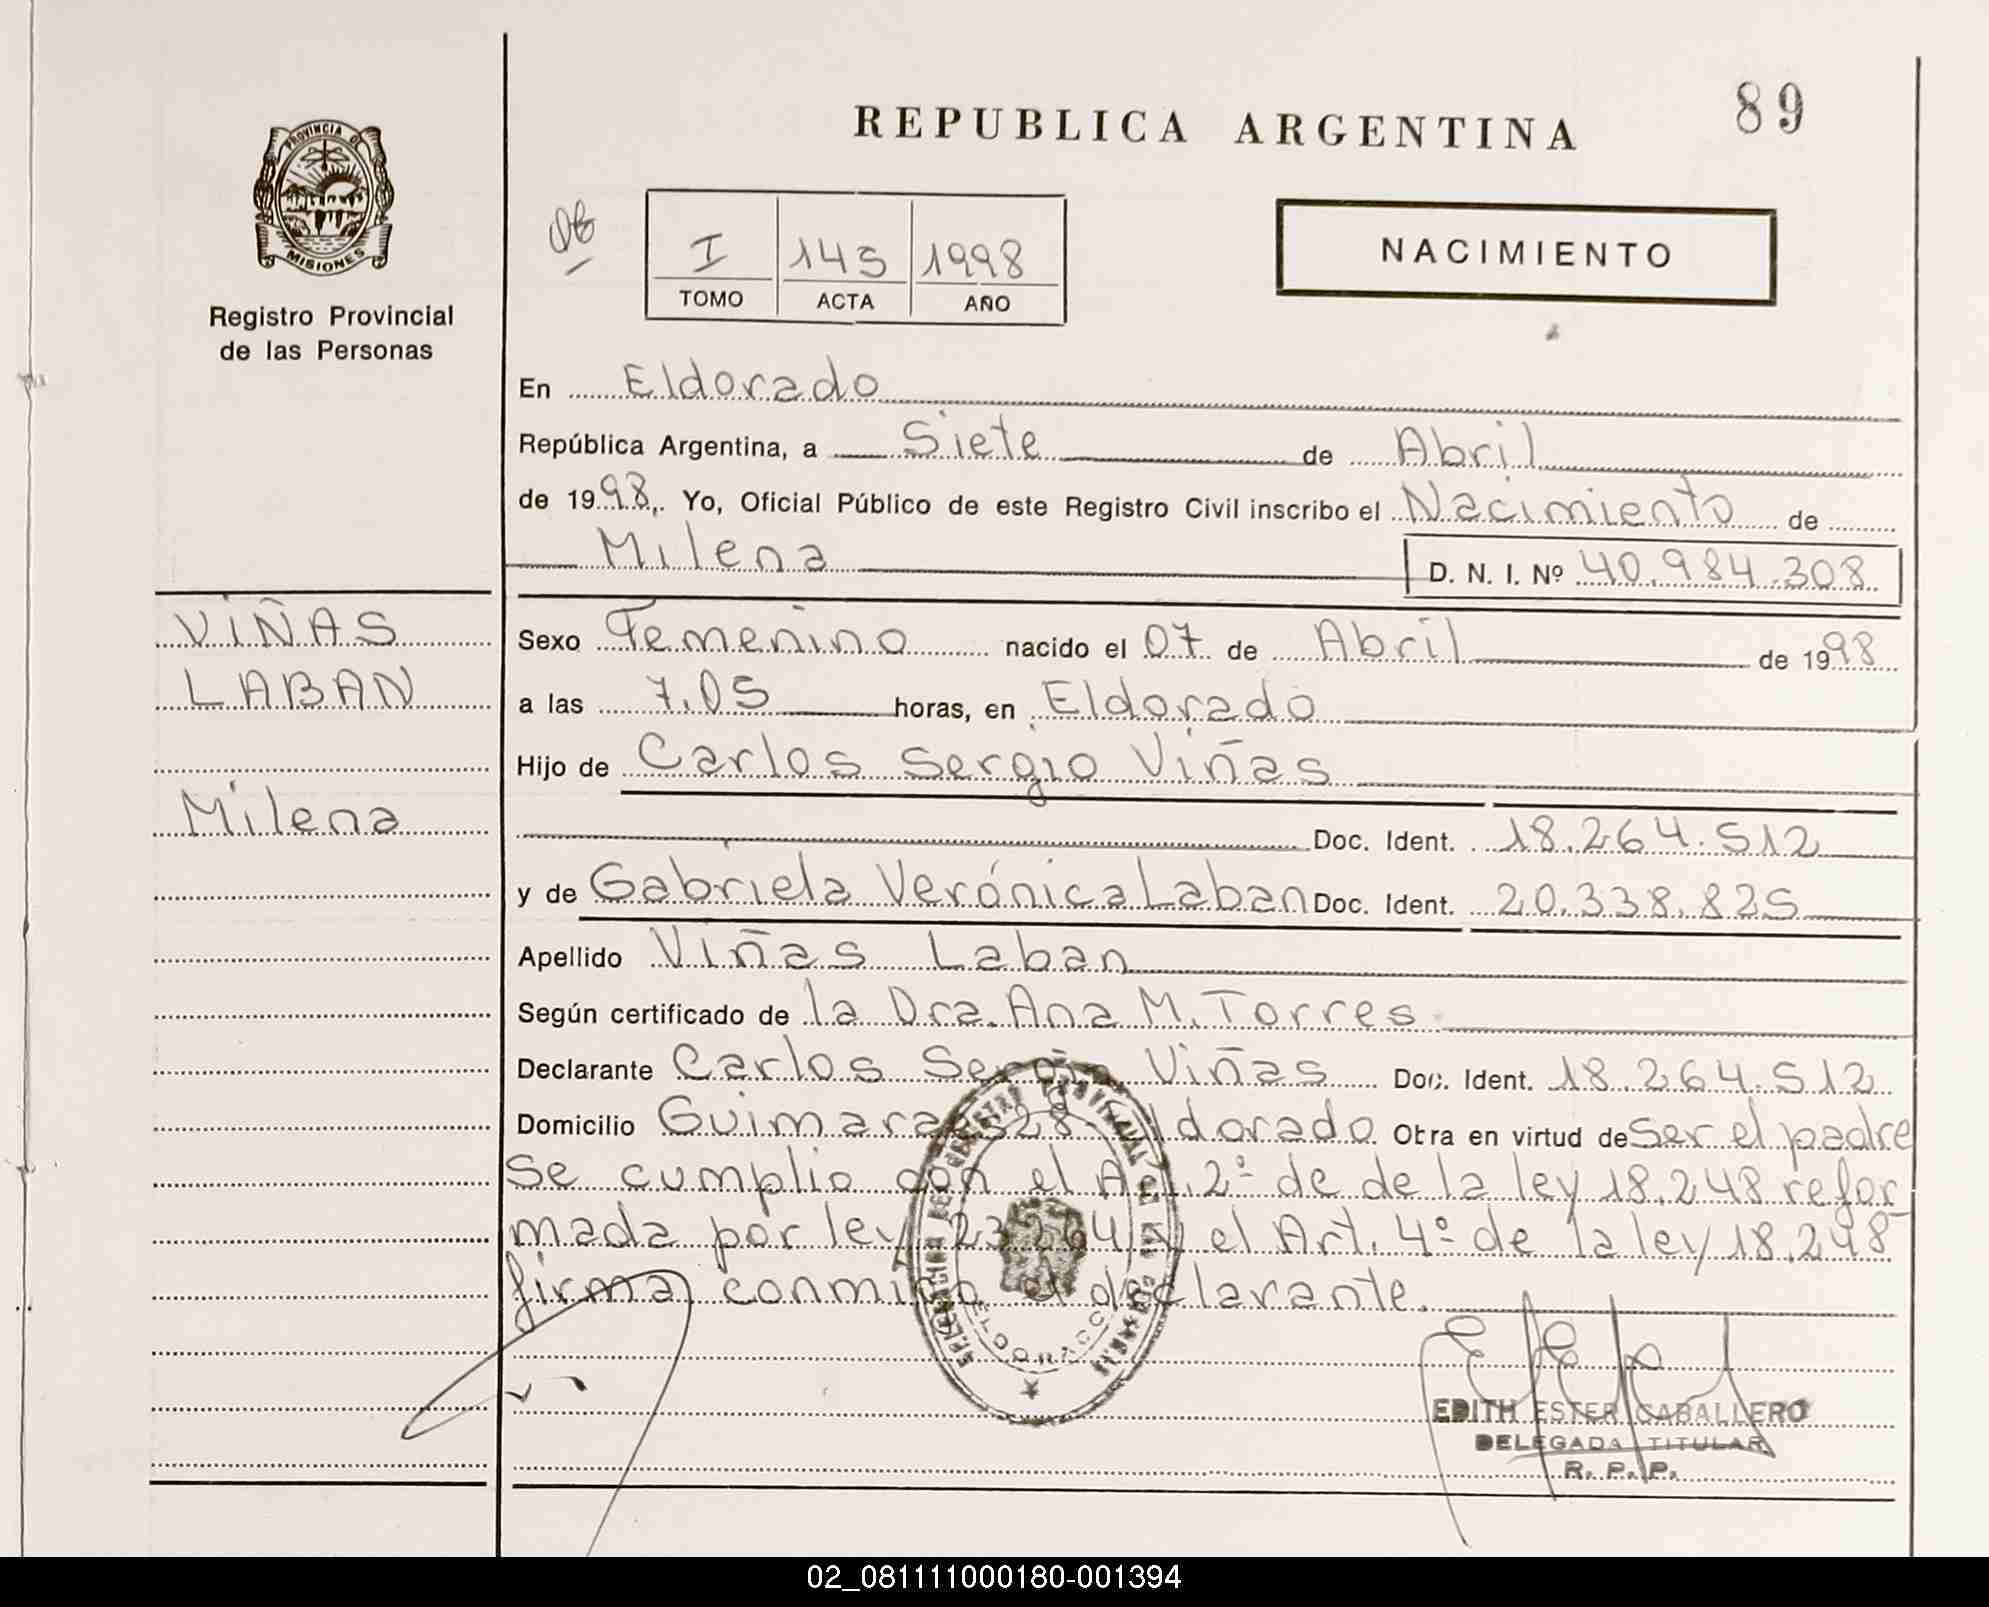 89
REPUBLICA ARGENTINA
PROVINCIA DE
MISIONES
Registro Provincial
de las Personas
I 145 1998
TOMO ACTA AÑO
NACIMIENTO
En Eldorado
República Argentina, a Siete de Abril
de 1998, Yo, Oficial Público de este Registro Civil inscribo el Nacimiento de
Milena D. N. I. Nº 40.984.308
VIÑAS
LABAN
Milena
Sexo Femenino nacido el 07 de Abril de 1998
a las 7.05 horas, en Eldorado
Hijo de Carlos Sergio Viñas
Doc. Ident. 18.264.512
y de Gabriela Verónica Laban Doc. Ident. 20.338.825
Apellido Viñas Laban
Según certificado de la Dra. Ana M. Torres
Declarante Carlos Sergio Viñas Doc. Ident. 18.264.512
Domicilio 28 Eldorado Obra en virtud de Ser el padre
Se cumplio con el Art. 2º de de la ley 18.248 refor
mada por ley 23264 y el Art. 4º de la ley 18.248
firma conmigo el declarante.
EDITH ESTER CABALLERO
DELEGADA TITULAR
R. P. P.
02_081111000180-001394